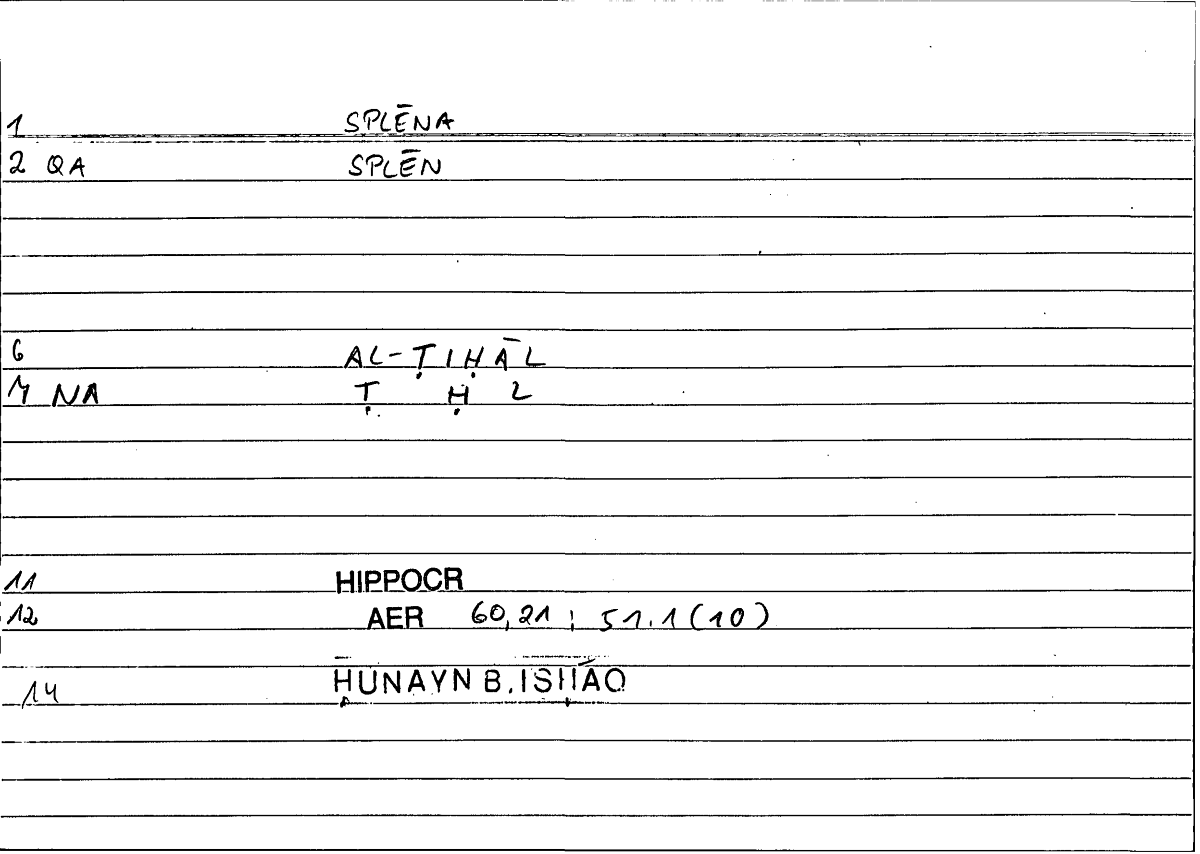 1 SPLĒNA
2 QA SPLĒN
6 AL-ṬIḤĀL
7 NA Ṭ Ḥ L
11 HIPPOCR
12 AER 60,21 ; 51.1 (10)
14 ḤUNAYN B. ISḤĀQ